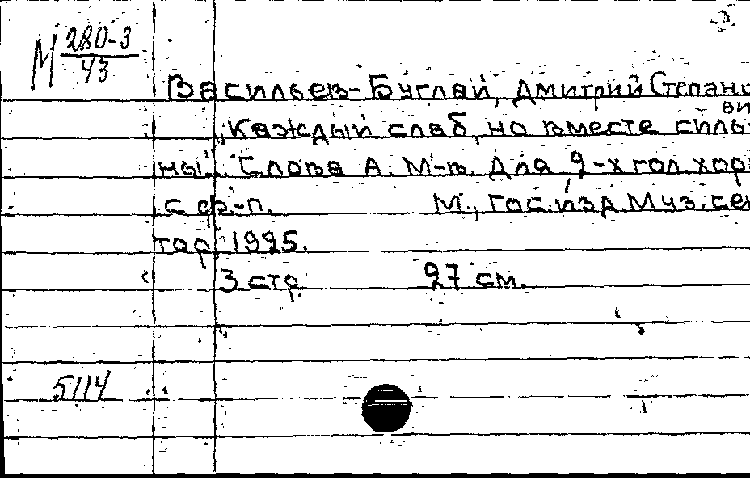 М 280-3
43
Васильев-Буглай, Дмитрий Степано
ви
"Каждый слаб, но вместе силь-
ны". Слова А. М-в. Для 2-х гол. хора
с ф.-п. М., Гос.изд.Муз.сек
тор. 1925.
3 стр. 27 см.
5114